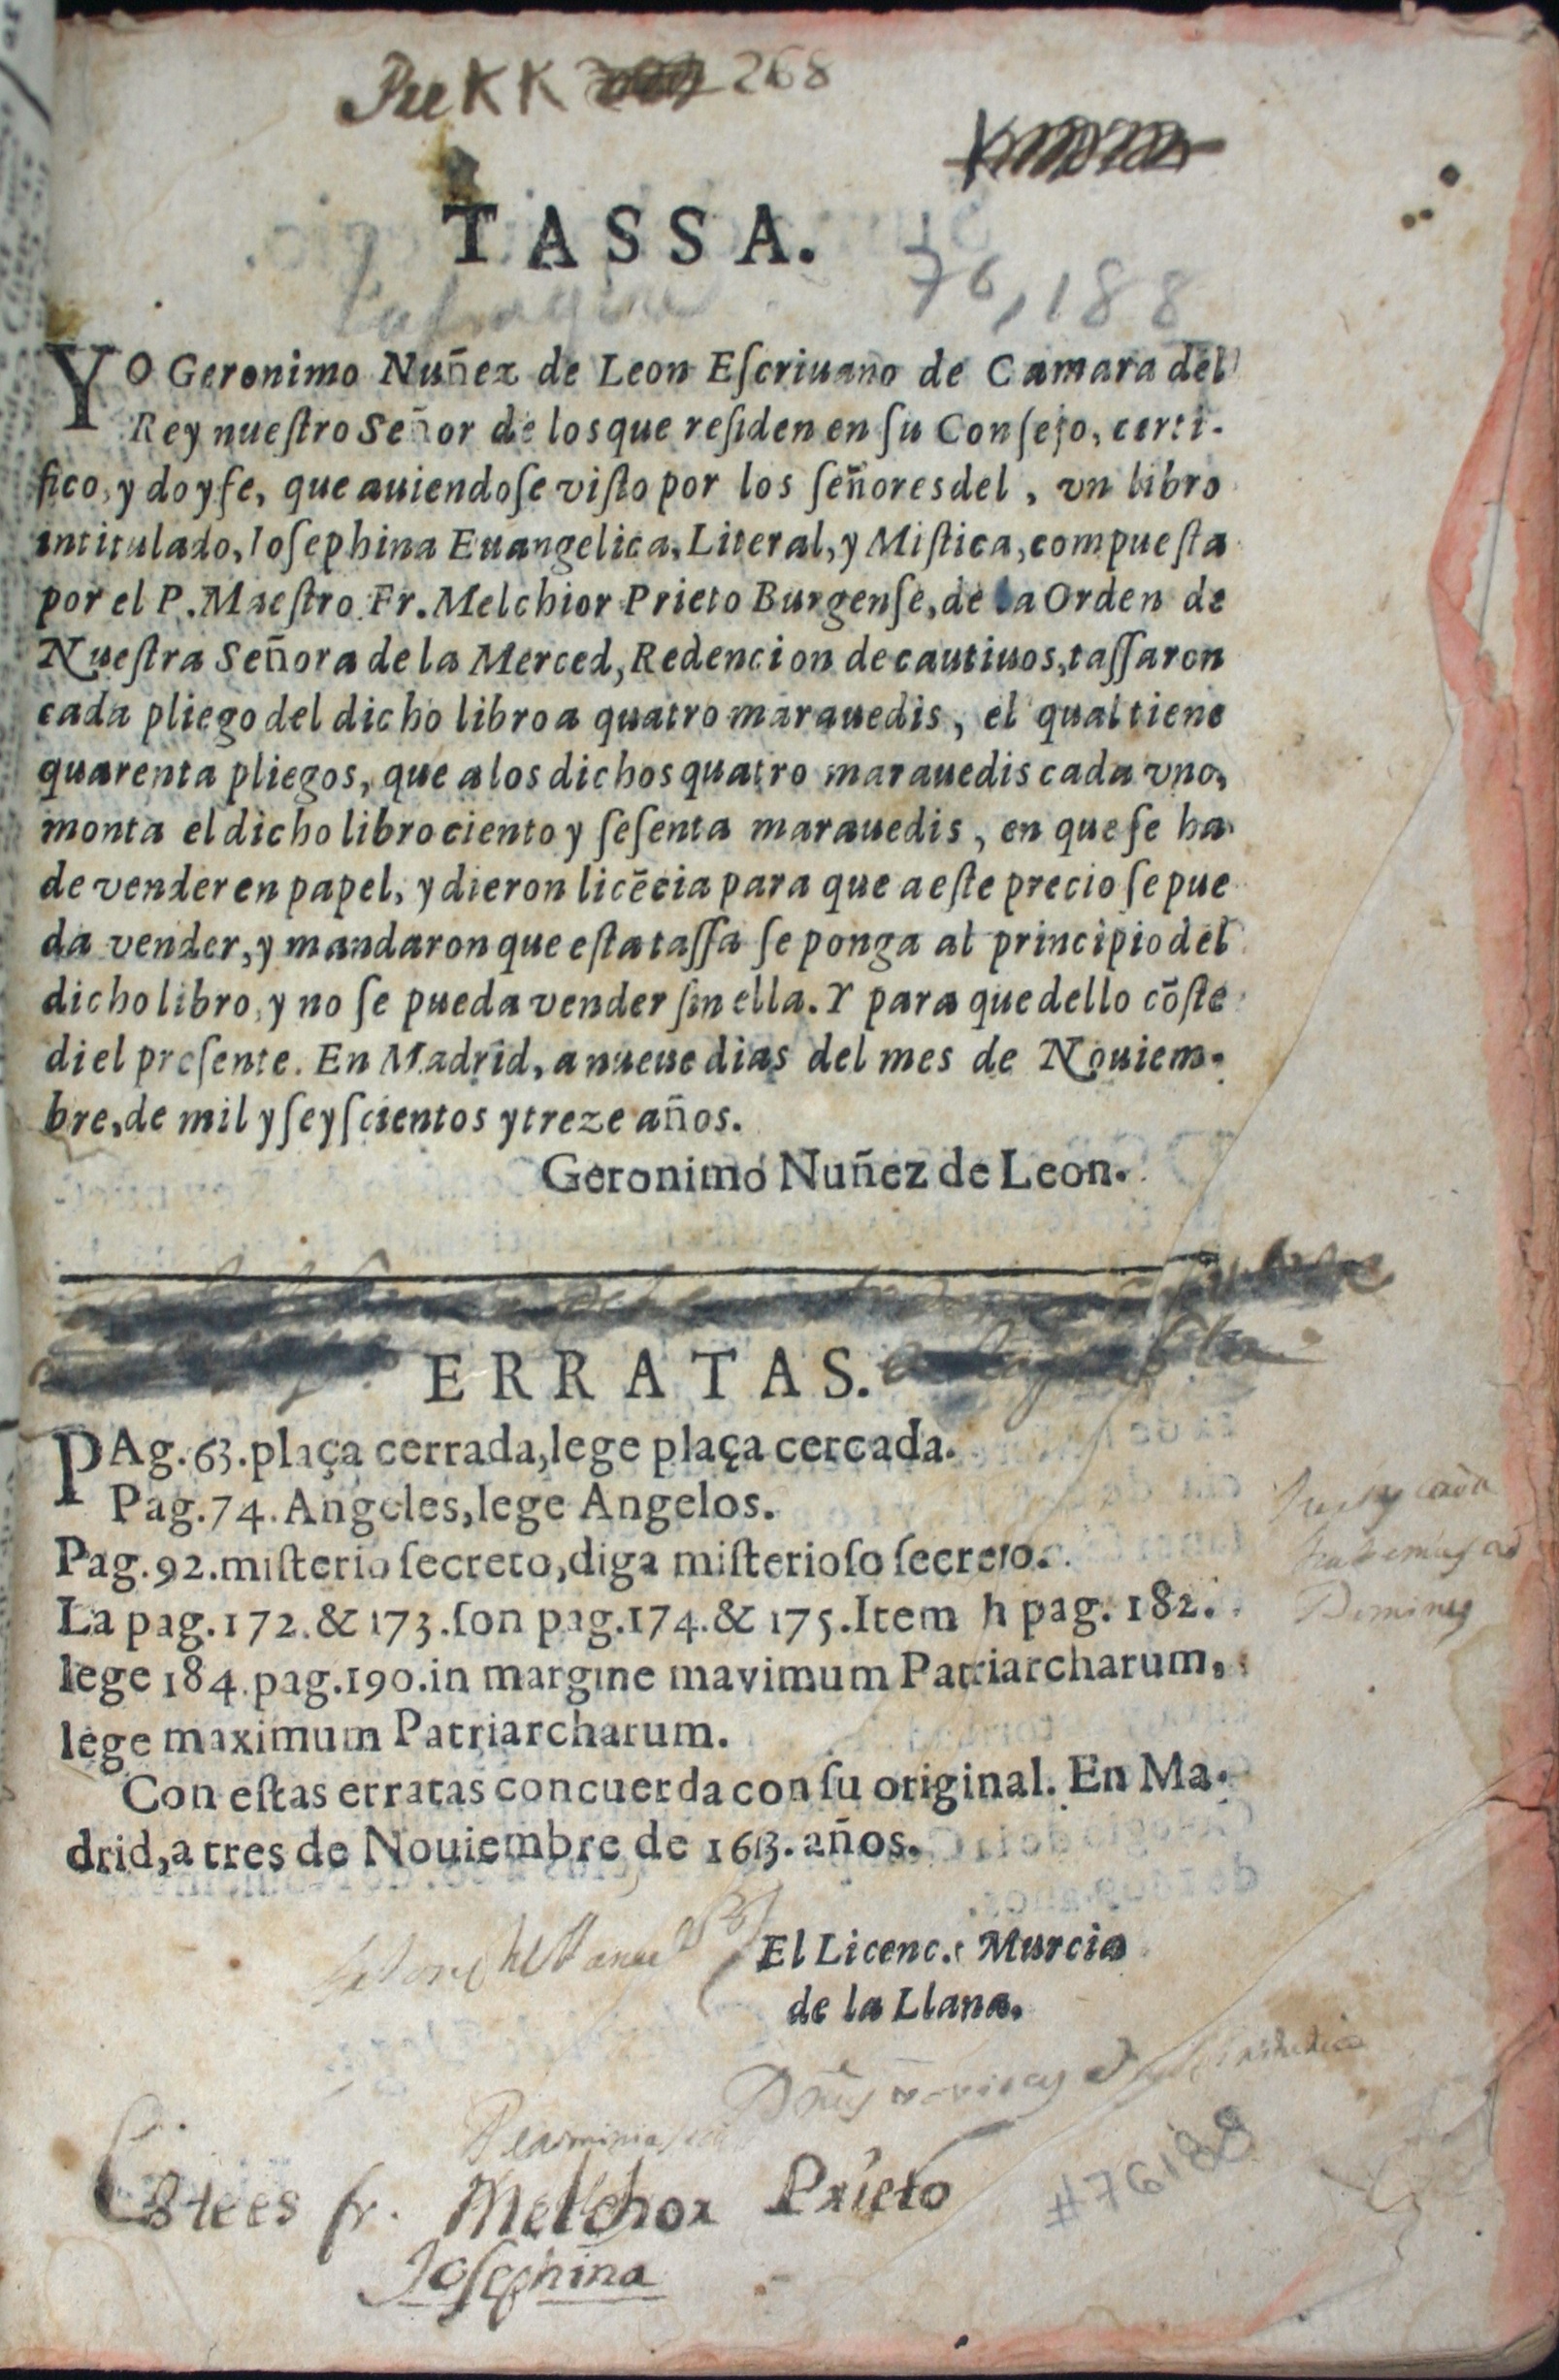 KK 268
TASSA.
76,188
YO Geronimo Nuñez de Leon Eſcriuano de Camara del
Rey nueſtro Señor de los que reſiden en ſu Conſejo, certi-
fico, y doy fe, que auiendoſe viſto por los ſeñores del, vn libro
intitulado, Ioſephina Euangelica, Literal, y Miſtica, compueſta
por el P. Maeſtro Fr. Melchior Prieto Burgenſe, de la Orden de
Nueſtra Señora de la Merced, Redencion de cautiuos, taſſaron
cada pliego del dicho libro a quatro marauedis, el qual tiene
quarenta pliegos, que a los dichos quatro marauedis cada vno,
monta el dicho libro ciento y ſeſenta marauedis, en que ſe ha
de vender en papel, y dieron licẽcia para que a eſte precio ſe pue
da vender, y mandaron que eſta taſſa ſe ponga al principio del
dicho libro, y no ſe pueda vender ſin ella. Y para que dello cõſte
di el preſente. En Madrid, a nueue dias del mes de Nouiem-
bre, de mil y ſeyſcientos y treze años.
Geronimo Nuñez de Leon.
ERRATAS.
PAg. 63. plaça cerrada, lege plaça cercada.
Pag. 74. Angeles, lege Angelos.
Pag. 92. miſterio ſecreto, diga miſterioſo ſecreto.
La pag. 172. & 173. ſon pag. 174. & 175. Item h pag. 182.
lege 184. pag. 190. in margine mavimum Patriarcharum,
lege maximum Patriarcharum.
Con eſtas erratas concuerda con ſu original. En Ma-
drid, a tres de Nouiembre de 1613. años.
El Licenc. Murcia
de la Llana.
#76188
fr. Melchor Prieto
Joſephina